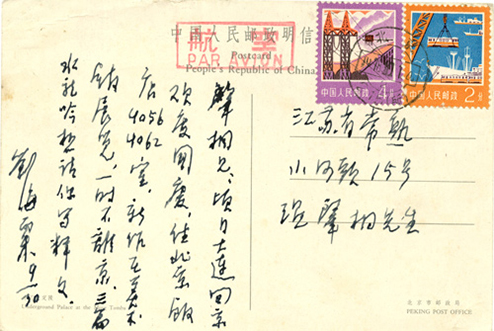 中国人民邮政明信
航空
PAR AVION
Postcard
People's Republic of China
中国人民邮政
4分
中国人民邮政
2分
江苏省常熟
小河头15号
先生
兄：顷自大连回京
欢度国庆，住北京饭
店4056
4062室，新作在美术
馆展览，一时不离京。三
水龙吟想请你写释文
刘海粟 9/30
Underground Palace at the Tombs
北京市邮政局
PEKING POST OFFICE